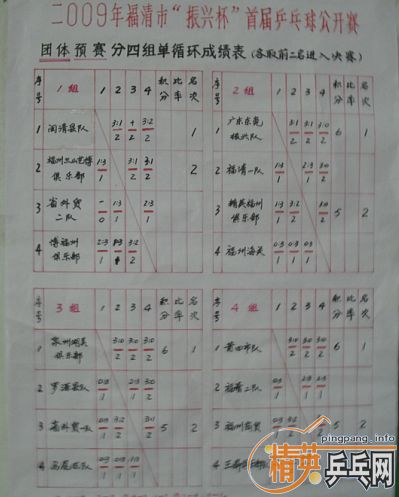 二〇〇9年福清市“振兴杯”首届乒乓球公开赛
团体预赛分四组单循环成绩表(各取前二名进入决赛)
序号 1组 1 2 3 4 积分 比率 名次
1 闽清县队 3:1/2 +/2 3:2/2 1
2 俱乐部 1:3/1 3:1/2 3:1/2 2
3 省外贸二队 -/0 1:3/1 2:3/1
4 博福州俱乐部 2:3/1 1:3/1 3:2/2
序号 2组 1 2 3 4 积分 比率 名次
1 广东东莞振兴队 3:1/2 3:1/2 3:0/2 6 1
2 福清一队 1:3/1 2:3/1 3:0/2
3 精英福州俱乐部 1:3/1 3:2/2 3:0/2 5 2
4 福州海关 0:3/1 0:3/1 0:3/1
序号 3组 1 2 3 4 积分 比率 名次
1 俱乐部 3:0/2 3:0/2 3:0/2 6 1
2 罗源县队 0:3/1 2:3/1 3:0/2
3 省外贸一队 0:3/1 3:2/2 3:1/2 5 2
4 0:3/1 0:3/1 1:3/1
序号 4组 1 2 3 4 积分 比率 名次
1 莆田市队 3:0/2 3:0/2 3:0/2 6 1
2 福清二队 0:3/1
3 福州 0:3/1 3:2/2 5 2
4
pingpang.info
精英乒乓网